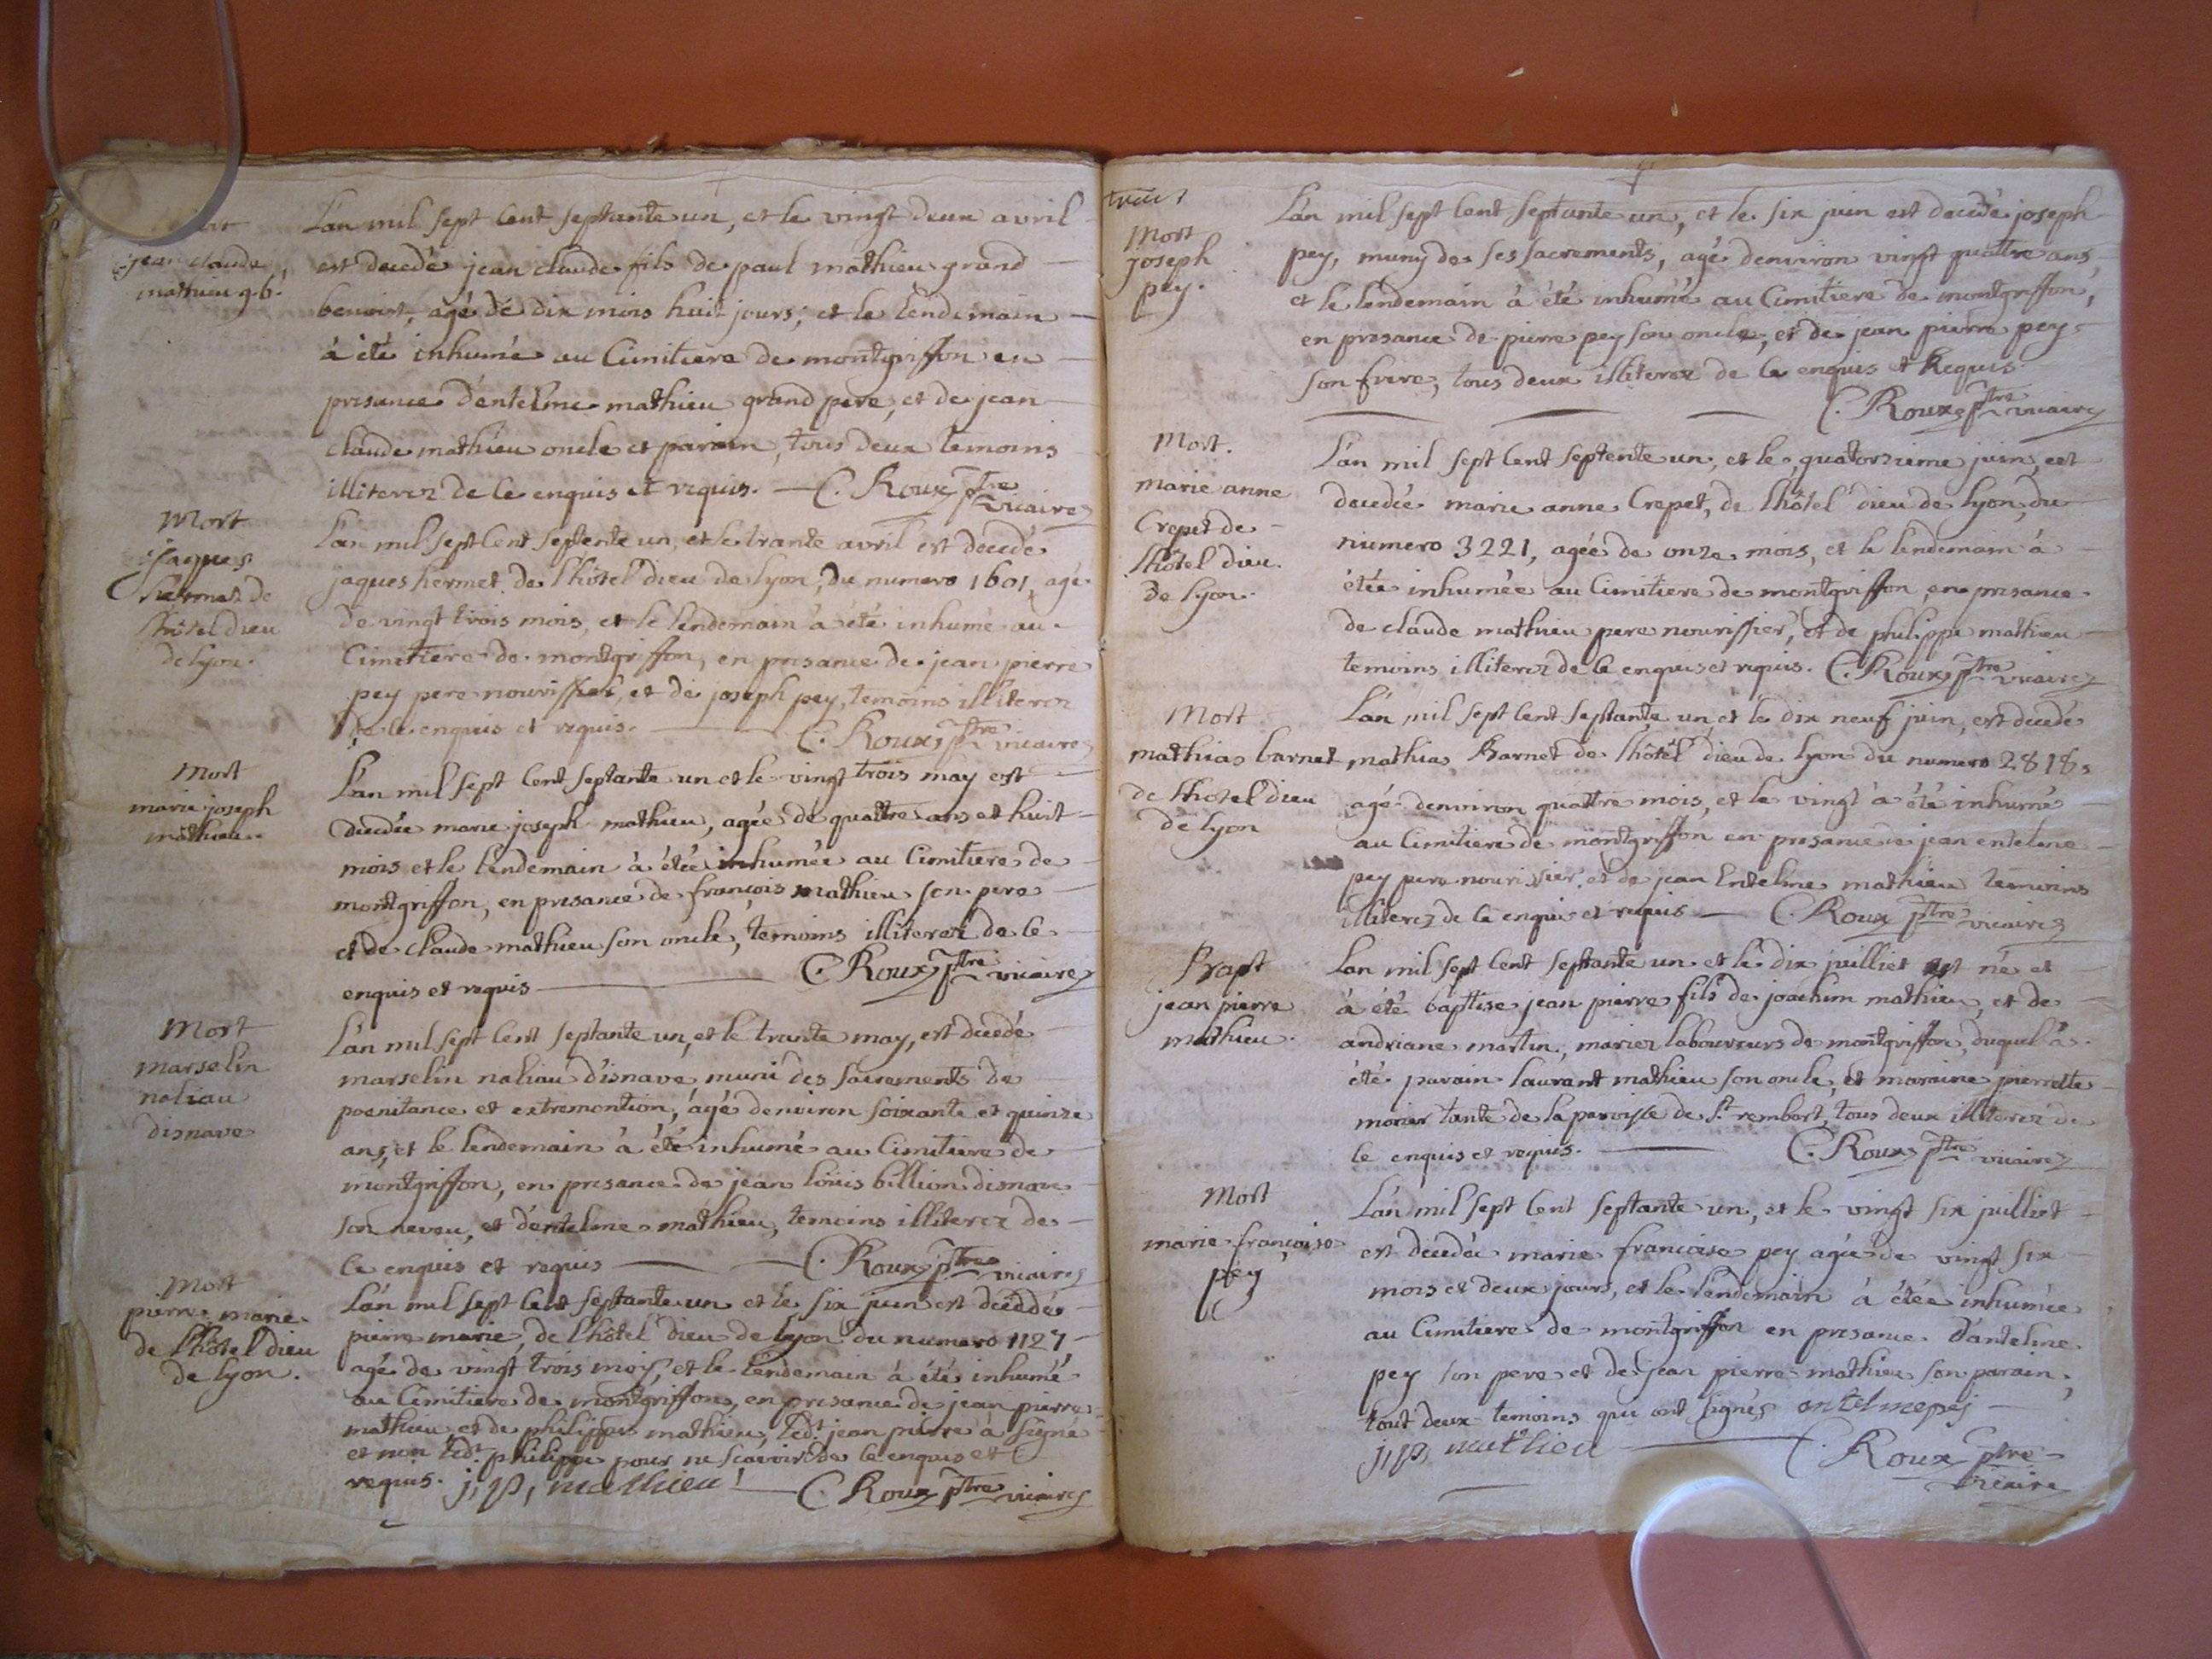 jean claude
mathieu g.b.
L'an mil sept cent septante un, et le vingt deux avril
est decedé jean claude fils de paul mathieu grand
benoist, agé de dix mois huit jours; et le lendemain
à été inhumé au Cimitiere de montgriffon en
presance d'entelme mathieu grand pere, et de jean
claude mathieu oncle et parain, tous deux temoins
illiterez de ce enquis et requis. — C. Roux ptre
vicaire
Mort
jaques
hermet de
l'hôtel dieu
de lyon.
L'an mil sept cent septente un, et le trante avril est decedé
jaques hermet de l'hôtel dieu de lyon, du numero 1601, agé
de vingt trois mois, et le lendemain à été inhumé au
Cimitiere de montgriffon, en presance de jean pierre
pey pere nouriffier, et de joseph pey, temoins illiterez
de ce enquis et requis. — C. Roux ptre vicaire
Mort
marie joseph
mathieu.
L'an mil sept cent septante un et le vingt trois may est
decedée marie joseph mathieu, agée de quattre ans et huit
mois et le lendemain à étée inhumée au Cimitiere de
montgriffon, en presance de françois mathieu son pere
et de claude mathieu son oncle, temoins illiterez de ce
enquis et requis — C. Roux ptre vicaire
Mort
marselin
naliau
disnave
L'an mil sept cent septante un, et le trante may, est decedé
marselin naliau disnave, muni des sacrements de
poenitance et extremontion, agé denviron soixante et quinze
ans, et le lendemain à été inhumé au Cimitiere de
montgriffon, en presance de jean loüis billion disnave
son neveu, et d'entelme mathieu, temoins illiterez de
ce enquis et requis — C. Roux ptre vicaire
Mort
pierre marie
de l'hôtel dieu
de lyon.
L'an mil sept cent septante un et le six juin est decedé
pierre marie, de l'hôtel dieu de lyon du numero 1127,
agé de vingt trois mois, et le lendemain à été inhumé
au Cimitiere de montgriffon, en presance de jean pierre
mathieu et de philippe mathieu, ledt jean pierre à signé
et non ledt philippe pour ne scavoir de ce enquis et
requis. j, p, mathieu — C Roux ptre vicaire
Mort
joseph
pey.
L'an mil sept cent septante un, et le six juin est decedé joseph
pey, muny de ses sacrements, agé denviron vingt quattre ans,
et le lendemain à été inhumé au Cimitiere de montgriffon,
en presance de pierre pey son oncle, et de jean pierre pey
son frere, tous deux illiterez de ce enquis et Requis.
C. Roux ptre vicaire
Mort.
marie anne
Crepet de
l'hôtel dieu.
de lyon.
L'an mil sept cent septente un, et le quatorzieme juin, est
decedée marie anne Crepet, de l'hôtel dieu de lyon, du
numero 3221, agée de onze mois, et le lendemain à
étée inhumée au Cimitiere de montgriffon, en presance
de claude mathieu pere nouriffier, et de philippe mathieu
temoins illiterez de ce enquis et requis. C. Roux ptre vicaire
Mort
mathias barnet
de l'hotel dieu
de lyon
L'an mil sept cent septante un, et le dix neuf juin, est decedé
mathias Barnet de l'hôtel dieu de lyon du numero 2818,
agé denviron quattre mois, et le vingt à été inhumé
au Cimitiere de montgriffon en presance de jean entelme
pey pere nourissier, et de jean Entelme mathieu temoins
illiterez de ce enquis et requis — C. Roux ptre vicaire
Bapt
jean pierre
mathieu.
L'an mil sept cent septante un et le dix juilliet est né et
à été baptise jean pierre fils de joachim mathieu, et de
andriane martin, mariez laboureurs de montgriffon, duquel a
été parain laurant mathieu son oncle, et maraine pierrette
morier tante de la paroisse de St rembert, tous deux illiterez de
ce enquis et requis. — C. Roux ptre vicaire
Mort
marie françoise
pey
L'an mil sept cent septante un, et le vingt six juilliet
est decedée marie françoise pey agée de vingt six
mois et deux jours, et le lendemain à étée inhumée
au Cimitiere de montgriffon en presance d'antelme
pey son pere et de jean pierre mathieu son parain,
tout deux temoins qui ont signés antelmepej
j, p, mathieu — C. Roux ptre
vicaire